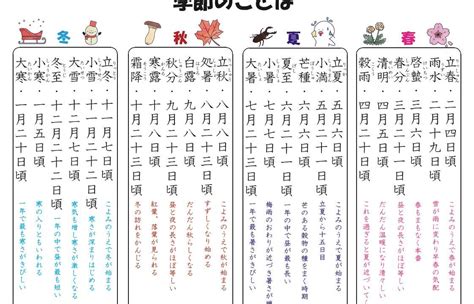 季節のことば
春
立春・二月四日頃 こよみのうえで春が始まる
雨水・二月十九日頃 雪が雨に変わり早春の気配
啓蟄・三月六日頃
春分・三月二十一日頃 昼と夜の長さがほぼ等しい
清明・四月五日頃 だんだん温暖になり清々しい
穀雨・四月二十日頃 これを過ぎると夏が近づく
夏
立夏・五月六日頃 こよみのうえで夏が始まる
小満・五月二十一日頃 立夏から十五日目
芒種・六月六日頃 のある穀物の種をまく時期
夏至・六月二十一日頃 一年の中で昼が最も長い
小暑・七月七日頃 梅雨のおわりが近づき暑さが増す
大暑・七月二十三日頃 一年で最も暑さがきびしい
秋
立秋・八月八日頃 こよみのうえで秋が始まる
処暑・八月二十三日頃 すずしくなり始める
白露・九月八日頃 だんだん秋らしくなる
秋分・九月二十三日頃 昼と夜の長さがほぼ等しい
寒露・十月八日頃 紅葉、落葉が見られる
霜降・十月二十三日頃 冬の訪れをかんじる
冬
立冬・十一月七日頃 こよみのうえで冬が始まる
小雪・十一月二十二日頃 寒さが深まりはじめる
大雪・十二月七日頃 寒気も増し寒さが激しくなる
冬至・十二月二十二日頃 一年の中で昼が最も短い
小寒・一月五日頃 寒の入りともいわれる
大寒・一月二十日頃 一年で最も寒さがきびしい